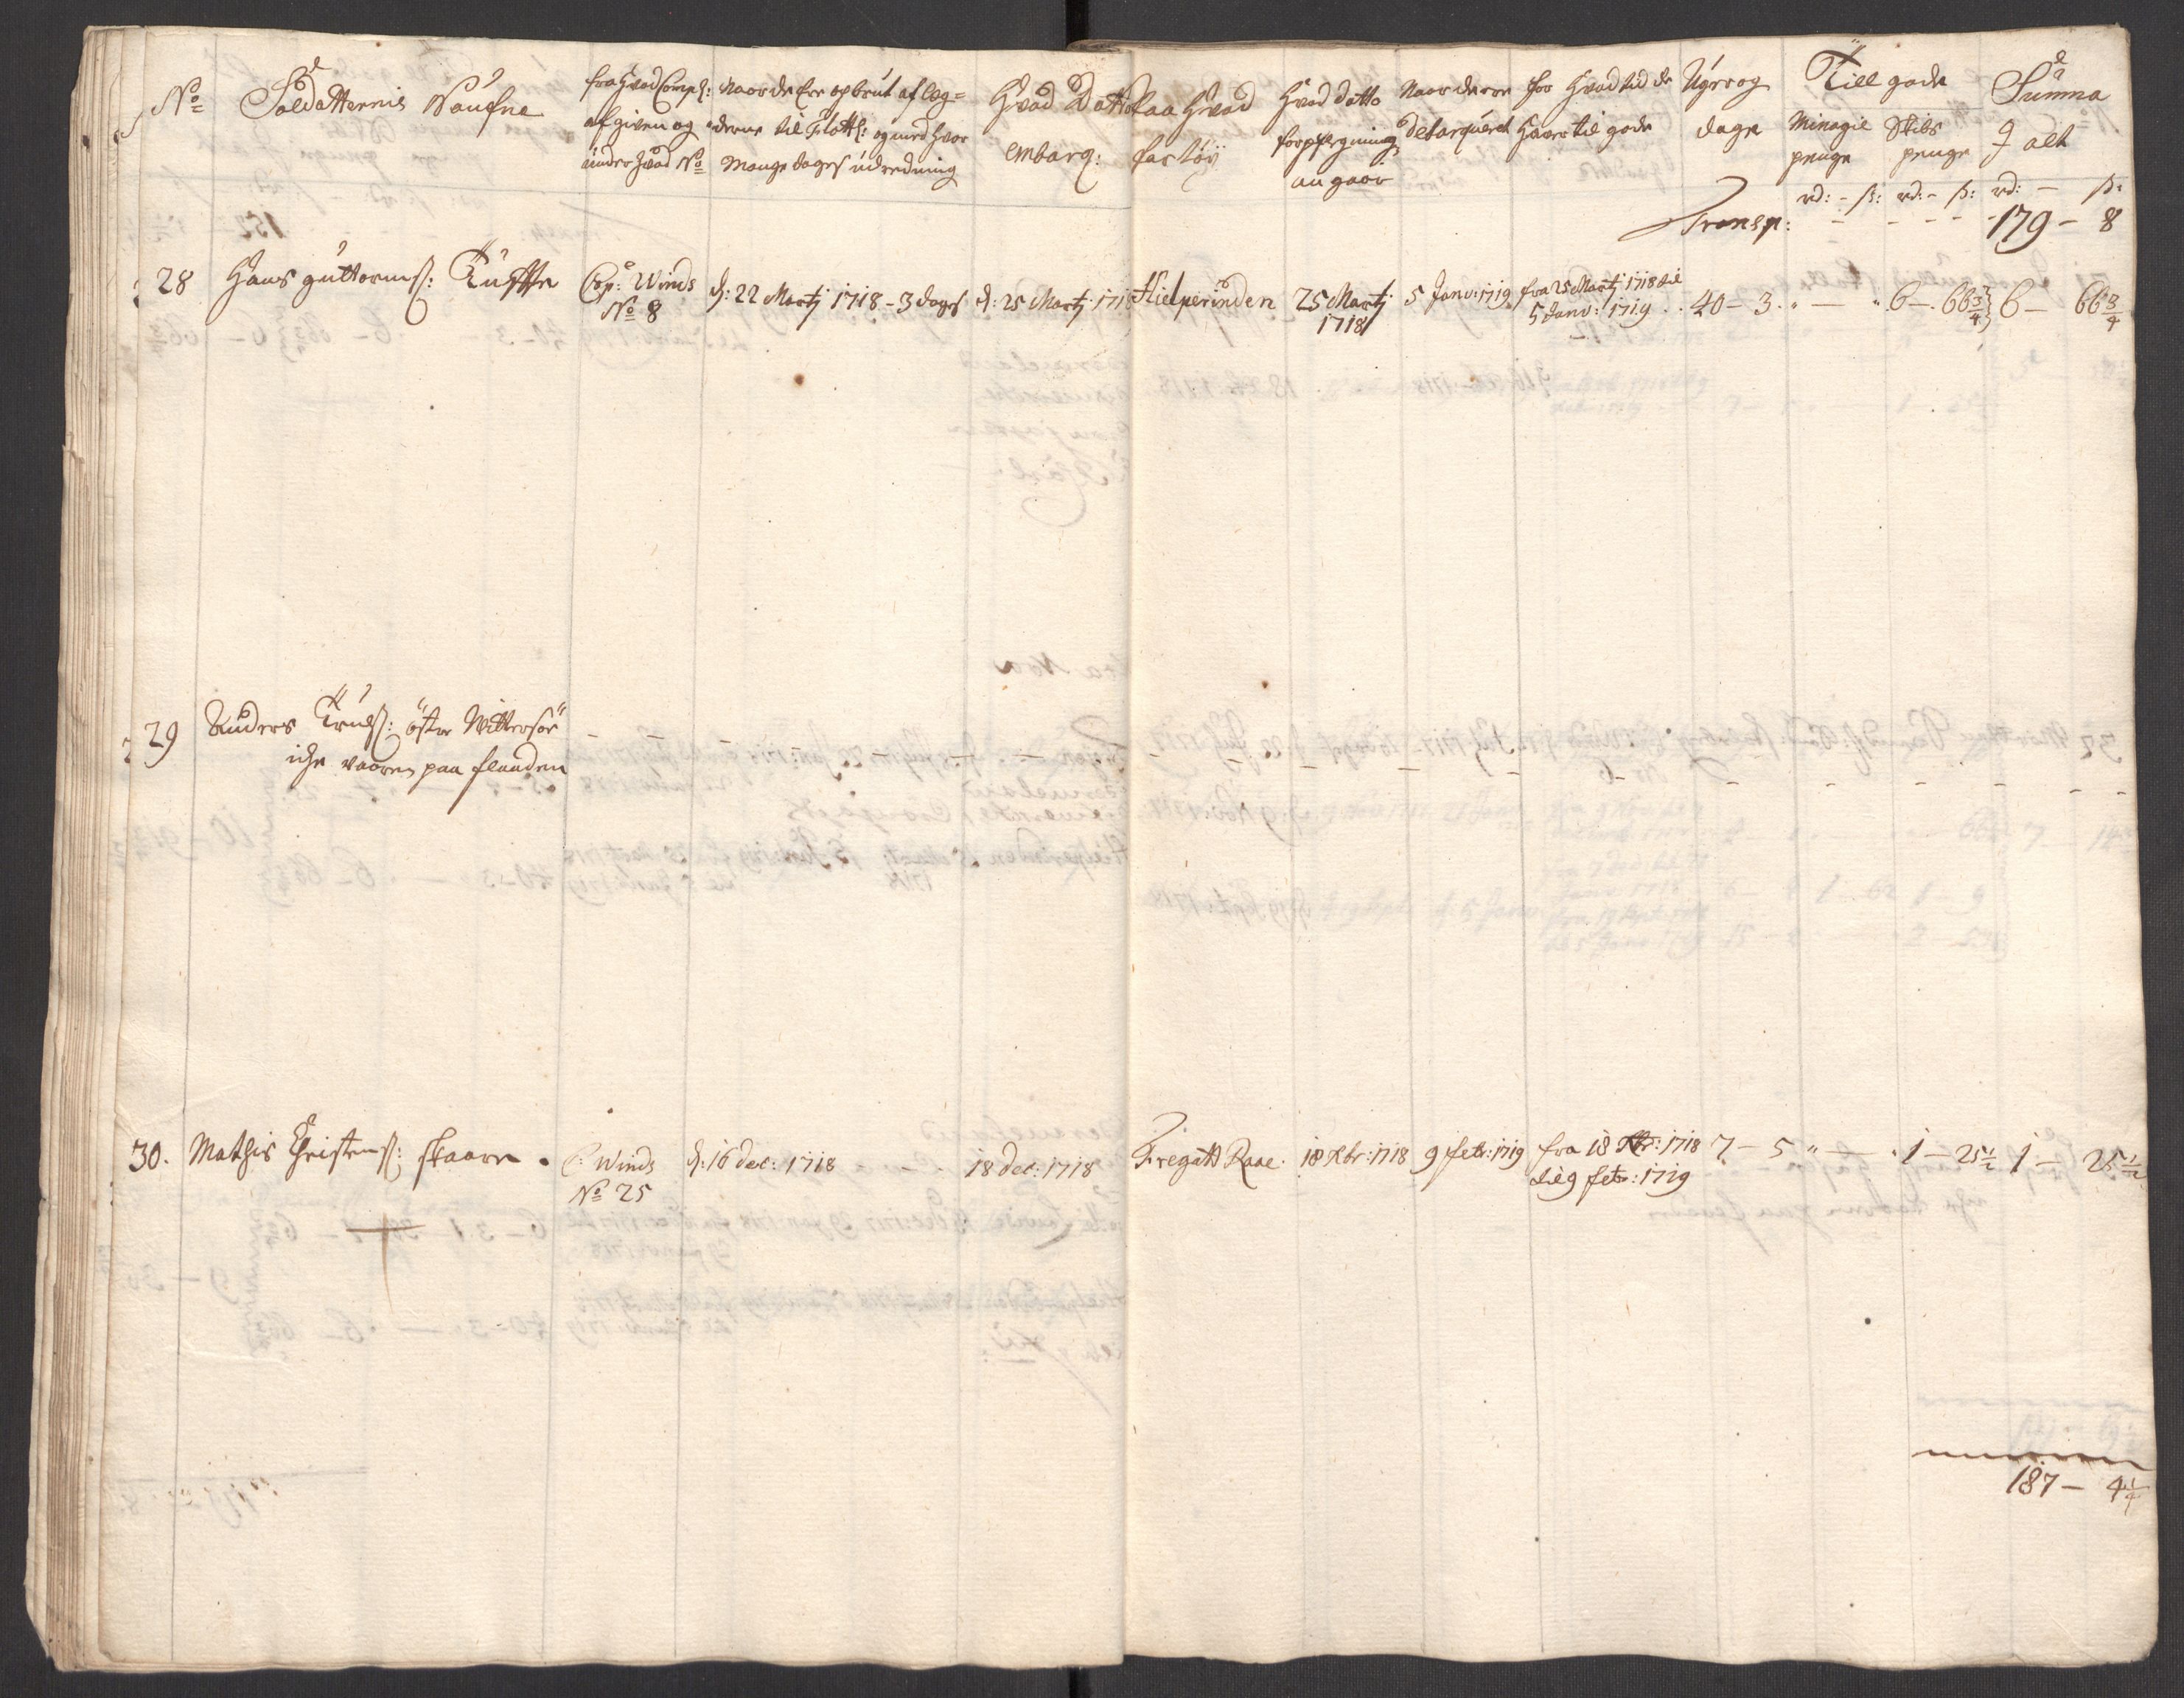 No Soldatternis Naufne
fra hvad Comp:
afgiven og
under hvad No
Naar de ere opbrut af læg=
derne til Flotts: og med hvor
mange dages udredning
Hvad Datto
embarq:
Paa hvad
fartöÿ
Hvad datto
forpflegning
angaar
Naar de ere
debarqueret
for hvad tid de
haver til gode
Uger og
dage
Till gode
Minagie Skibs
penge penge
rd: - s: rd: - s:
Summa
I alt
rd: - s:
Transp: - - - - 179 - 8
28 Hans guttorms: Cap: Winds
No 8
d: 22 Martj 1718 - 3 dages d: 25 Martj 1718 Hielperinden 25 Martj
1718
5 Janv: 1719 fra 25 Martj 1718 til
5 Janv: 1719 . . 40 - 3 . " — " 6 - 66 3/4 6 - 66 3/4
29 Anders öster
iche vaaren paa flaaden
30. Mathis Christens: skaare . C: Winds
No 25
d: 16 dec: 1718 18 dec: 1718 Fregatt Raae 18 Xbr: 1718 9 febr: 1719 fra 18 Xbr: 1718
til 9 febr: 1719
7 - 5 " — . 1 - 25 1/2 1 - 25 1/2
187 - 4 1/4